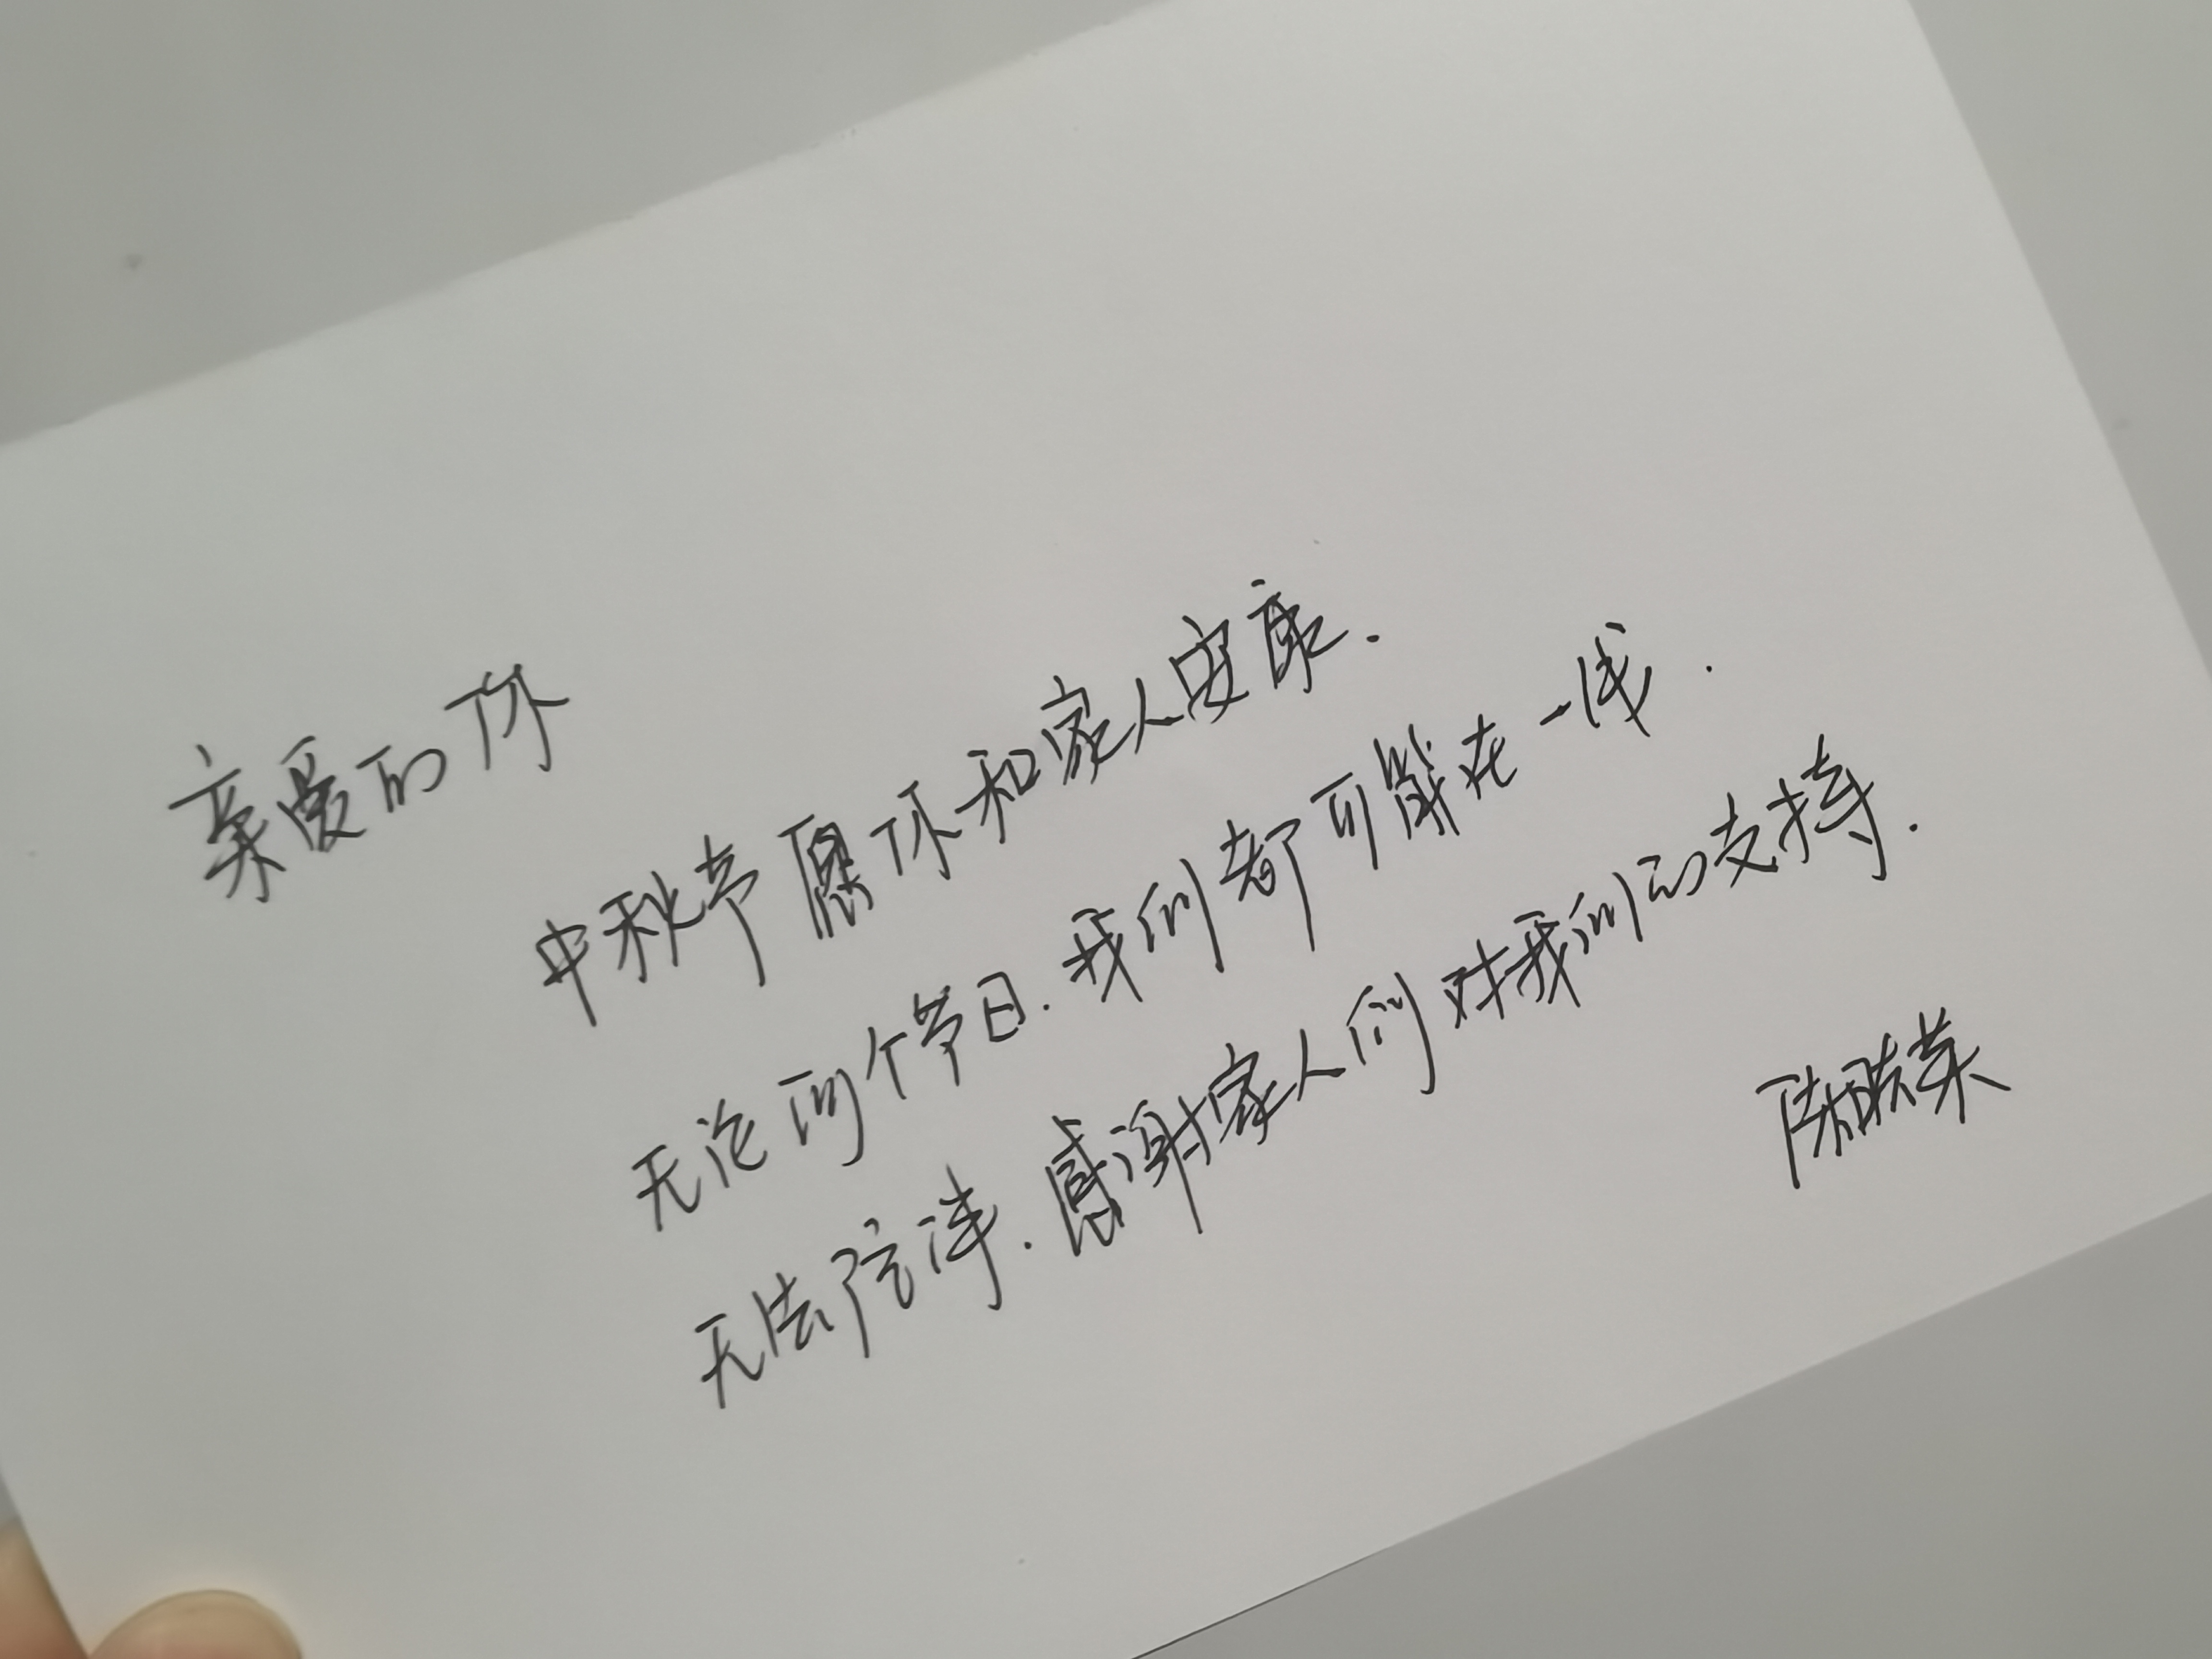 亲爱的你
中秋节愿你和家人安康.
无论哪个节日.我们都可能在一线.
无法陪伴.感谢家人们对我们的支持.
陈